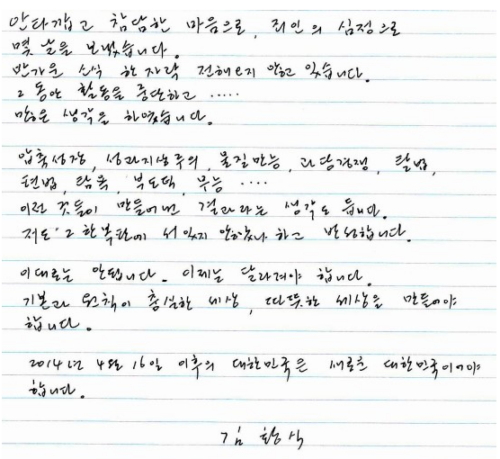 안타깝고 참담한 마음으로, 죄인의 심정으로
몇 날을 보냈습니다.
반가운 소식 한자락 전해오지 않고 있습니다.
그동안 활동을 중단하고 .....
많은 생각을 하였습니다.
압축성장, 성과지상주의, 물질만능, 과당경쟁, 탈법,
편법, 탐욕, 부도덕, 무능 ....
이런 것들이 만들어낸 결과라는 생각도 듭니다.
저도 그 한복판에 서 있지 않았나 하고 반성합니다.
이대로는 안됩니다. 이제는 달라져야 합니다.
기본과 원칙이 충실한 세상, 따뜻한 세상을 만들어야
합니다.
2014년 4월 16일 이후의 대한민국은 새로운 대한민국이어야
합니다.
김황식